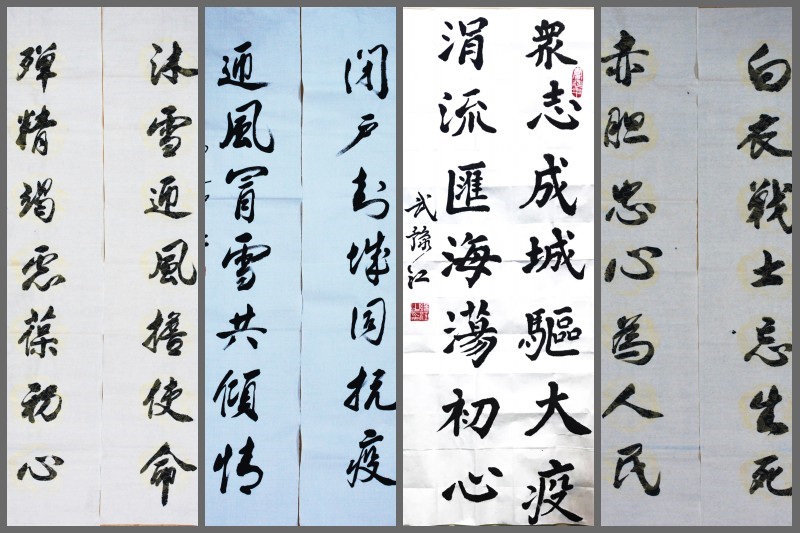 沐雪迎風擔使命
殫精竭慮葆初心
閉户封城同抗疫
迎風冒雪共傾情
衆志成城驅大疫
涓流匯海蕩初心
武豫江
白衣戰士忘生死
赤胆忠心為人民